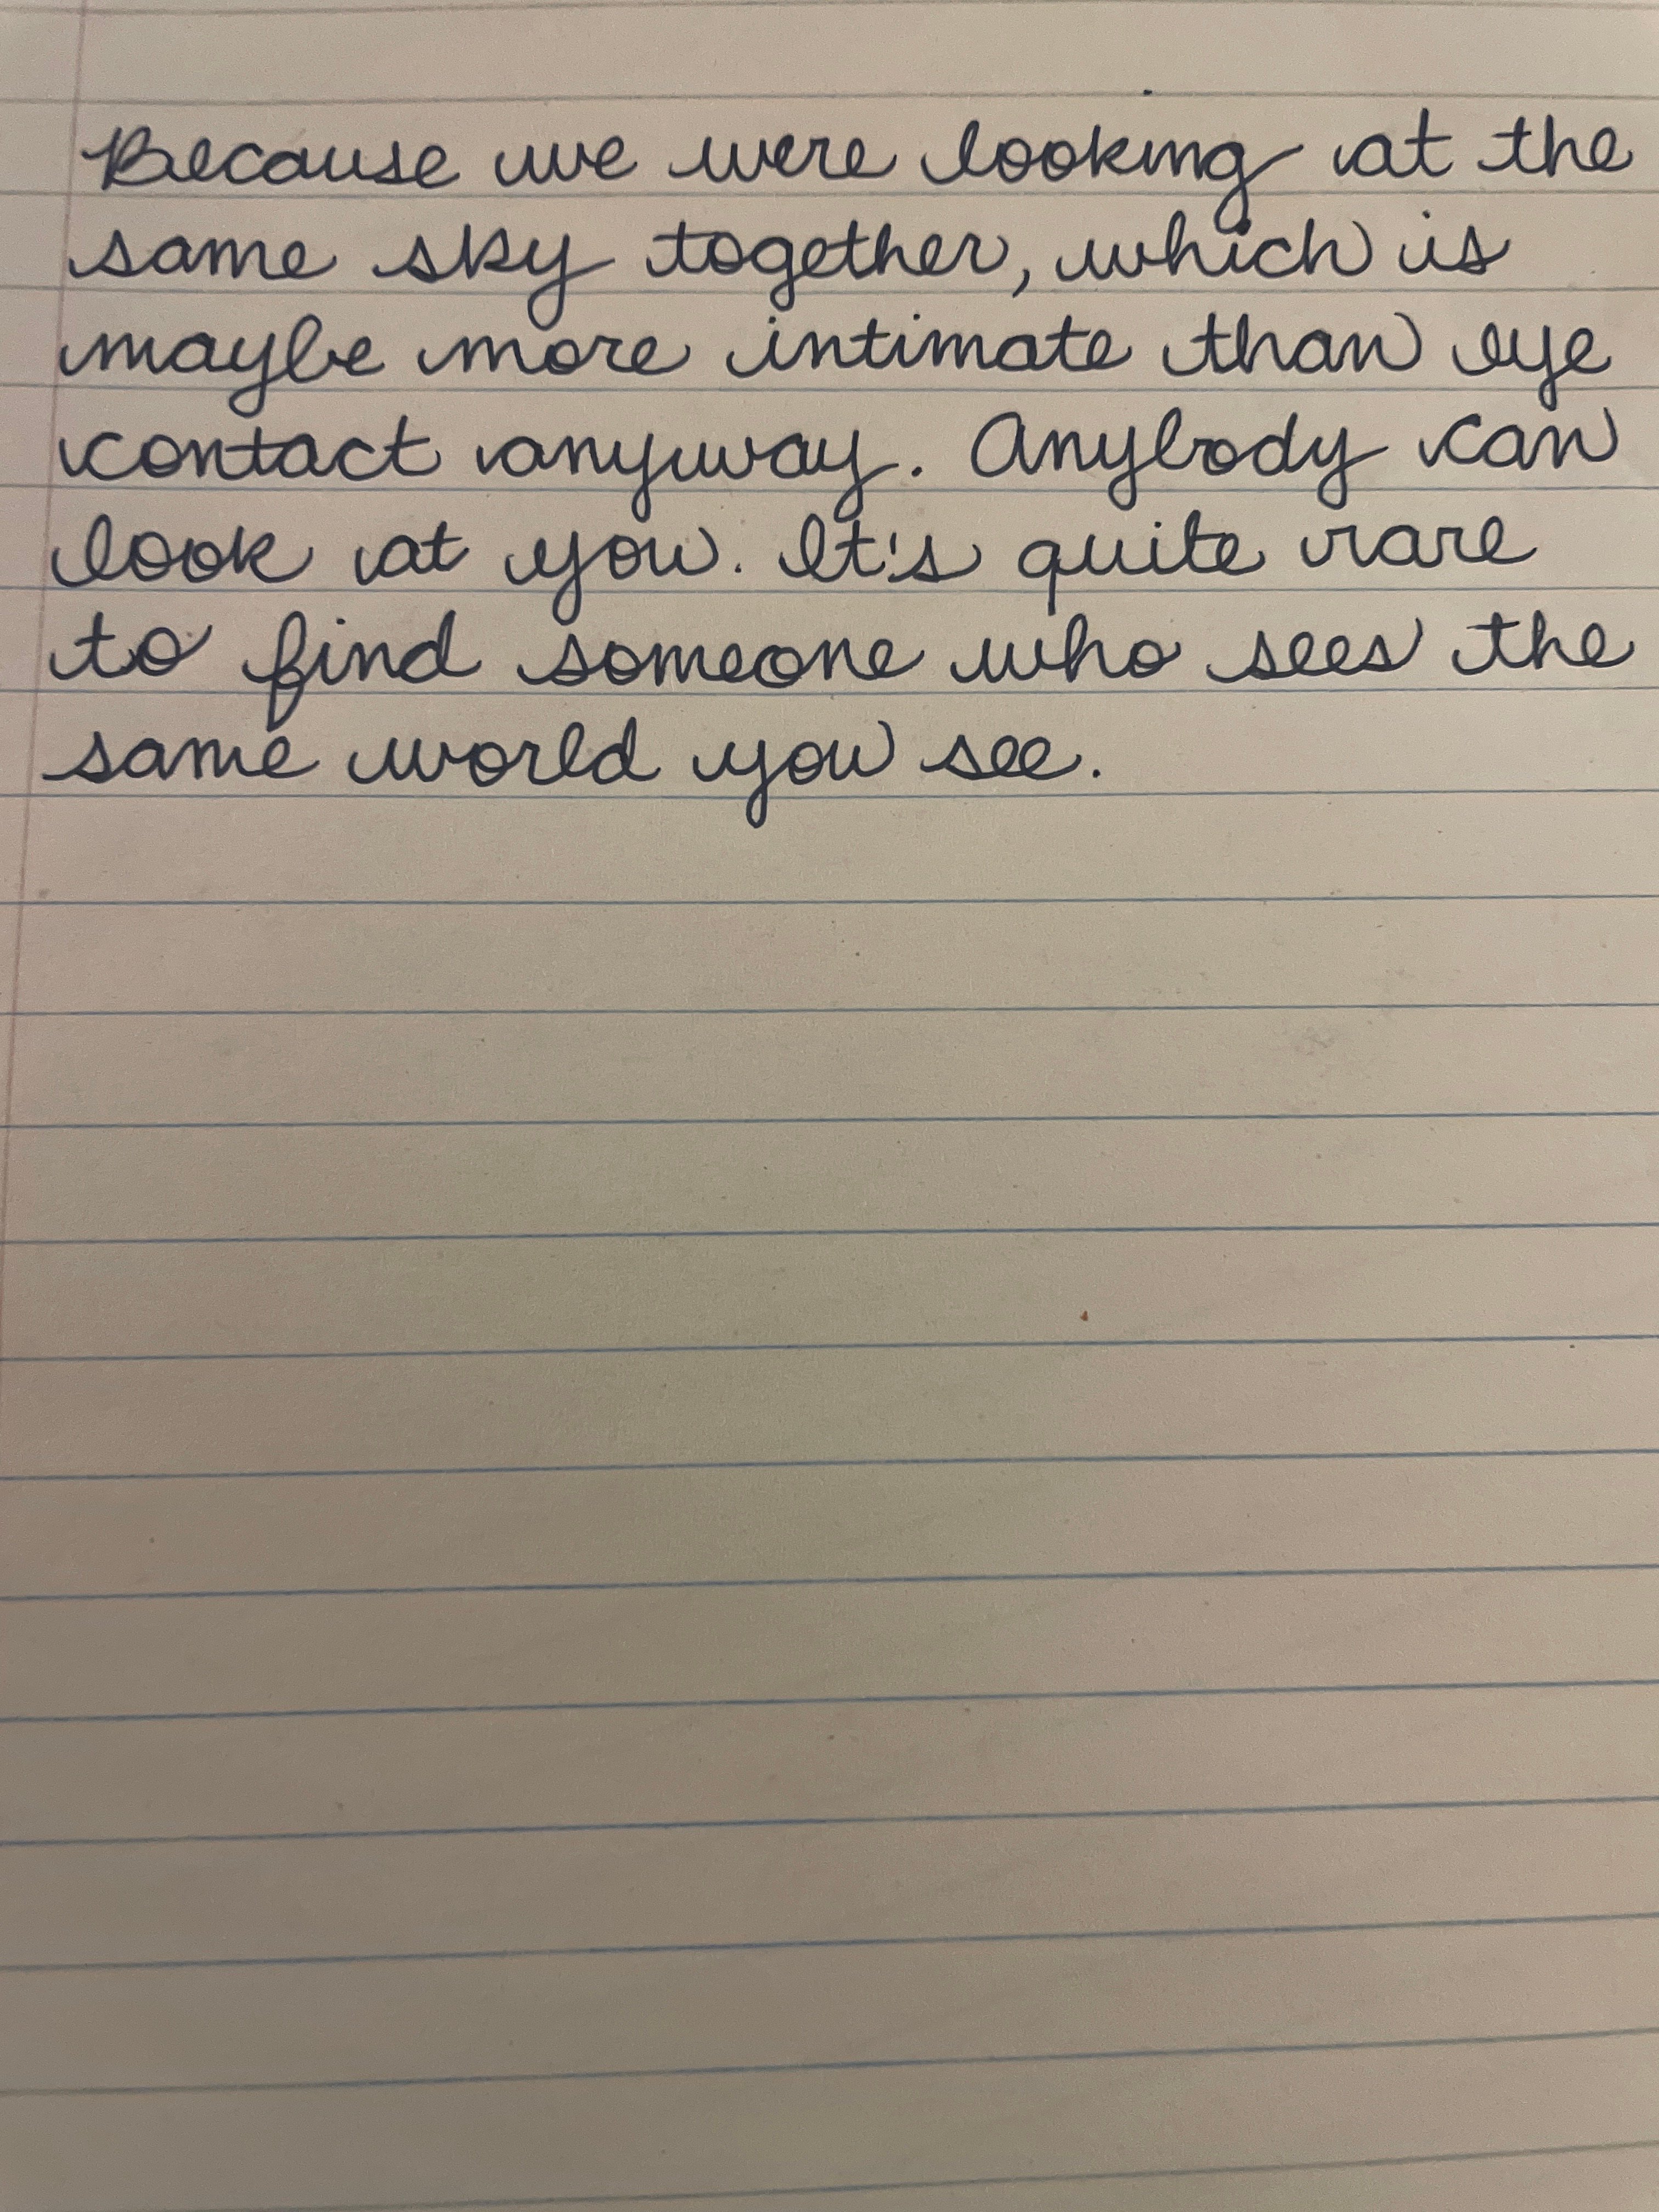 Because we were looking at the
same sky together, which is
maybe more intimate than eye
contact anyway. Anybody can
look at you. It's quite rare
to find someone who sees the
same world you see.